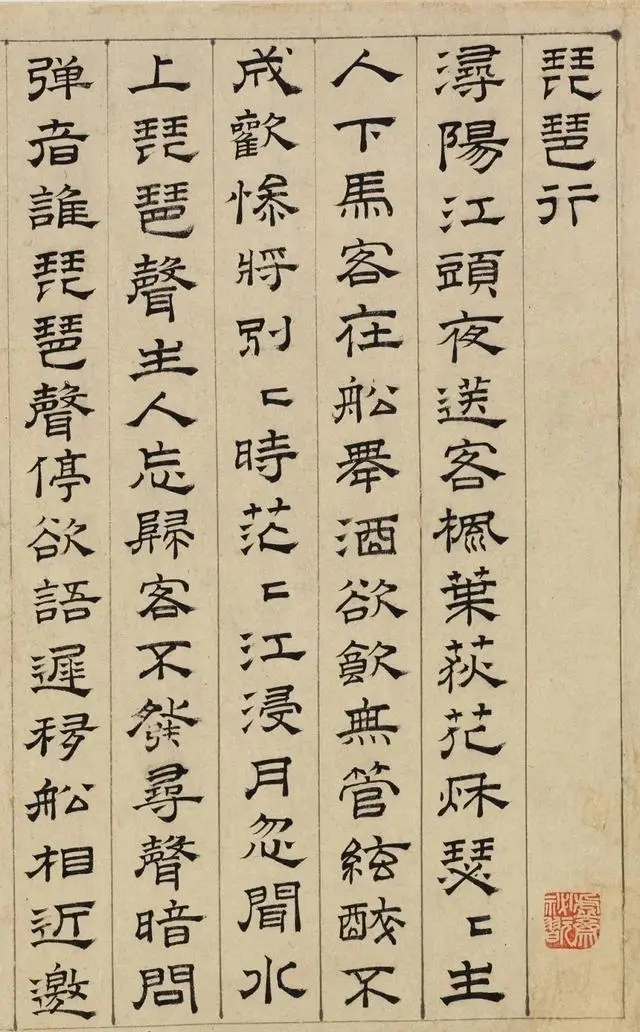 琵琶行
潯陽江頭夜送客楓葉荻花秋瑟〻主
人下馬客在船舉酒欲飲無管絃醉不
成歡慘將別〻時茫〻江浸月忽聞水
上琵琶聲主人忘歸客不發尋聲暗問
弹者誰琵琶聲停欲語遲移船相近邀